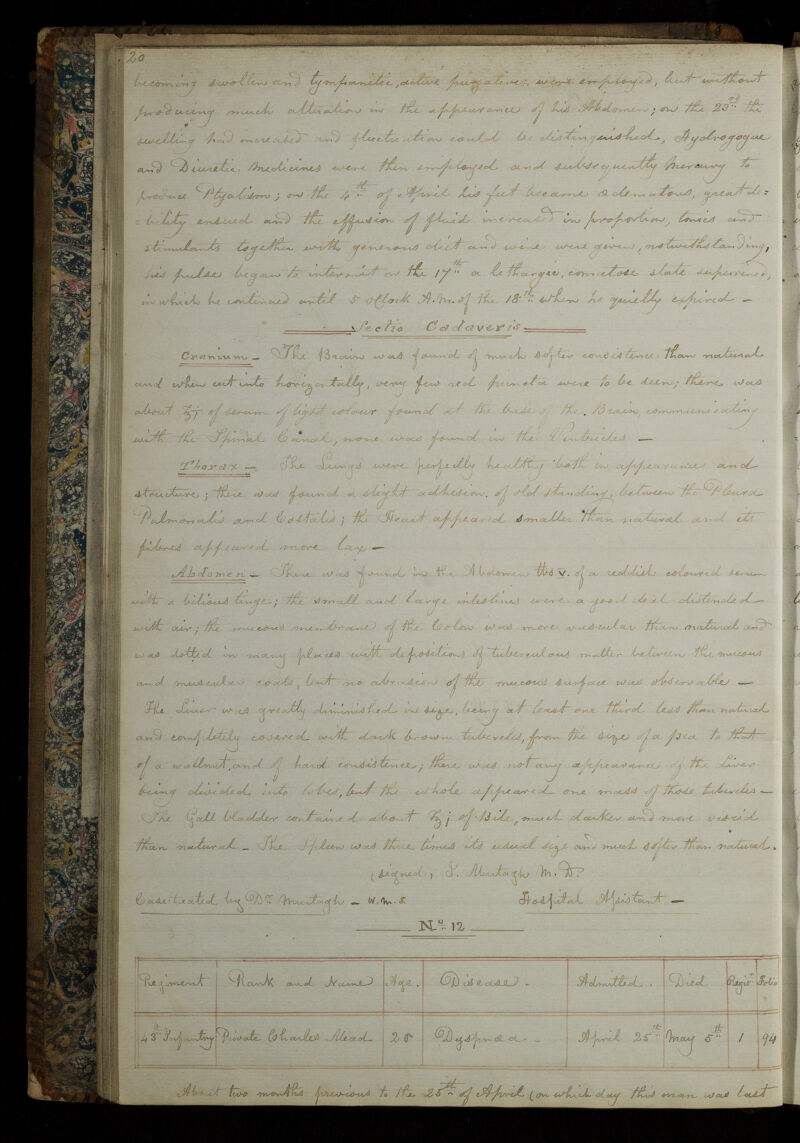 20
becoming swollen and tympanitic, active purgatives were employed, but without
producing much alteration in the appearance of his Abdomen; on the 23rd the
swelling had increased and fluctuation could be distinguished, Hydrogogue
and Diuretic Medicines were then employed and subsequently Mercury to
produce Ptyalism; on the 4th of April his feet became œdematous, great de=
=bility ensued and the effusion of fluid increased in proportion, tonics and
stimulants together with generous diet and wine were given, notwithstanding,
his pulse began to intermit on the 17th a lethargic, comatose state supervened,
in which he continued until 5 oClock A.M. of the 18th when he quietly expired —
Sectio Cadaveris
Cranium — The Brain was found of much softer consistence than natural
and when cut into horizontally, very few red puncta were to be seen; there was
about of serum of light colour found at the base of the Brain, communicating
with the Spinal Canal, none was found in the Ventricles —
Thorax — The Lungs were perfectly healthy both in appearance and
structure; there was found a slight adhesion, of old standing, between the Pleura
Pulmonalis and Costalis; the Heart appeared smaller than natural and its
fibres appeared more lax —
Abdomen — There was found in the Abdomen lbs v. of a reddish coloured serum
with a bilious tinge; the small and large intestines were a good deal distended
with air; the mucous membrane of the Colon was more vascular than natural and
was dotted in many places with depositions of tuberculous matter between the mucous
and muscular coats, but no abrasion of the mucous surface was observable —
The Liver was greatly diminished in size, being at least one third less than natural
and completely covered with dark brown tubercles, from the size of a pea to that
of a wallnut, and of hard consistence; there was not any appearance of the Liver
being divided into lobes, but the whole appeared one mass of those tubercles —
The Gall bladder contained about ℥j of Bile, much darker and more viscid
than natural — The Spleen was three times its usual size and much softer than natural.
(signed, Murtagh M.D.
Case treated by Dr. Murtagh — W.M.S. Hospital Assistant —
No. 12
Regiment Rank and Name Age. Disease. Admitted. Died Regisr Folio
43d Infantry Private Charles Mead 28 Dyspnœa — April 25th May 5th 1 94
About two months previous to the 25th of April (on which day this man was last